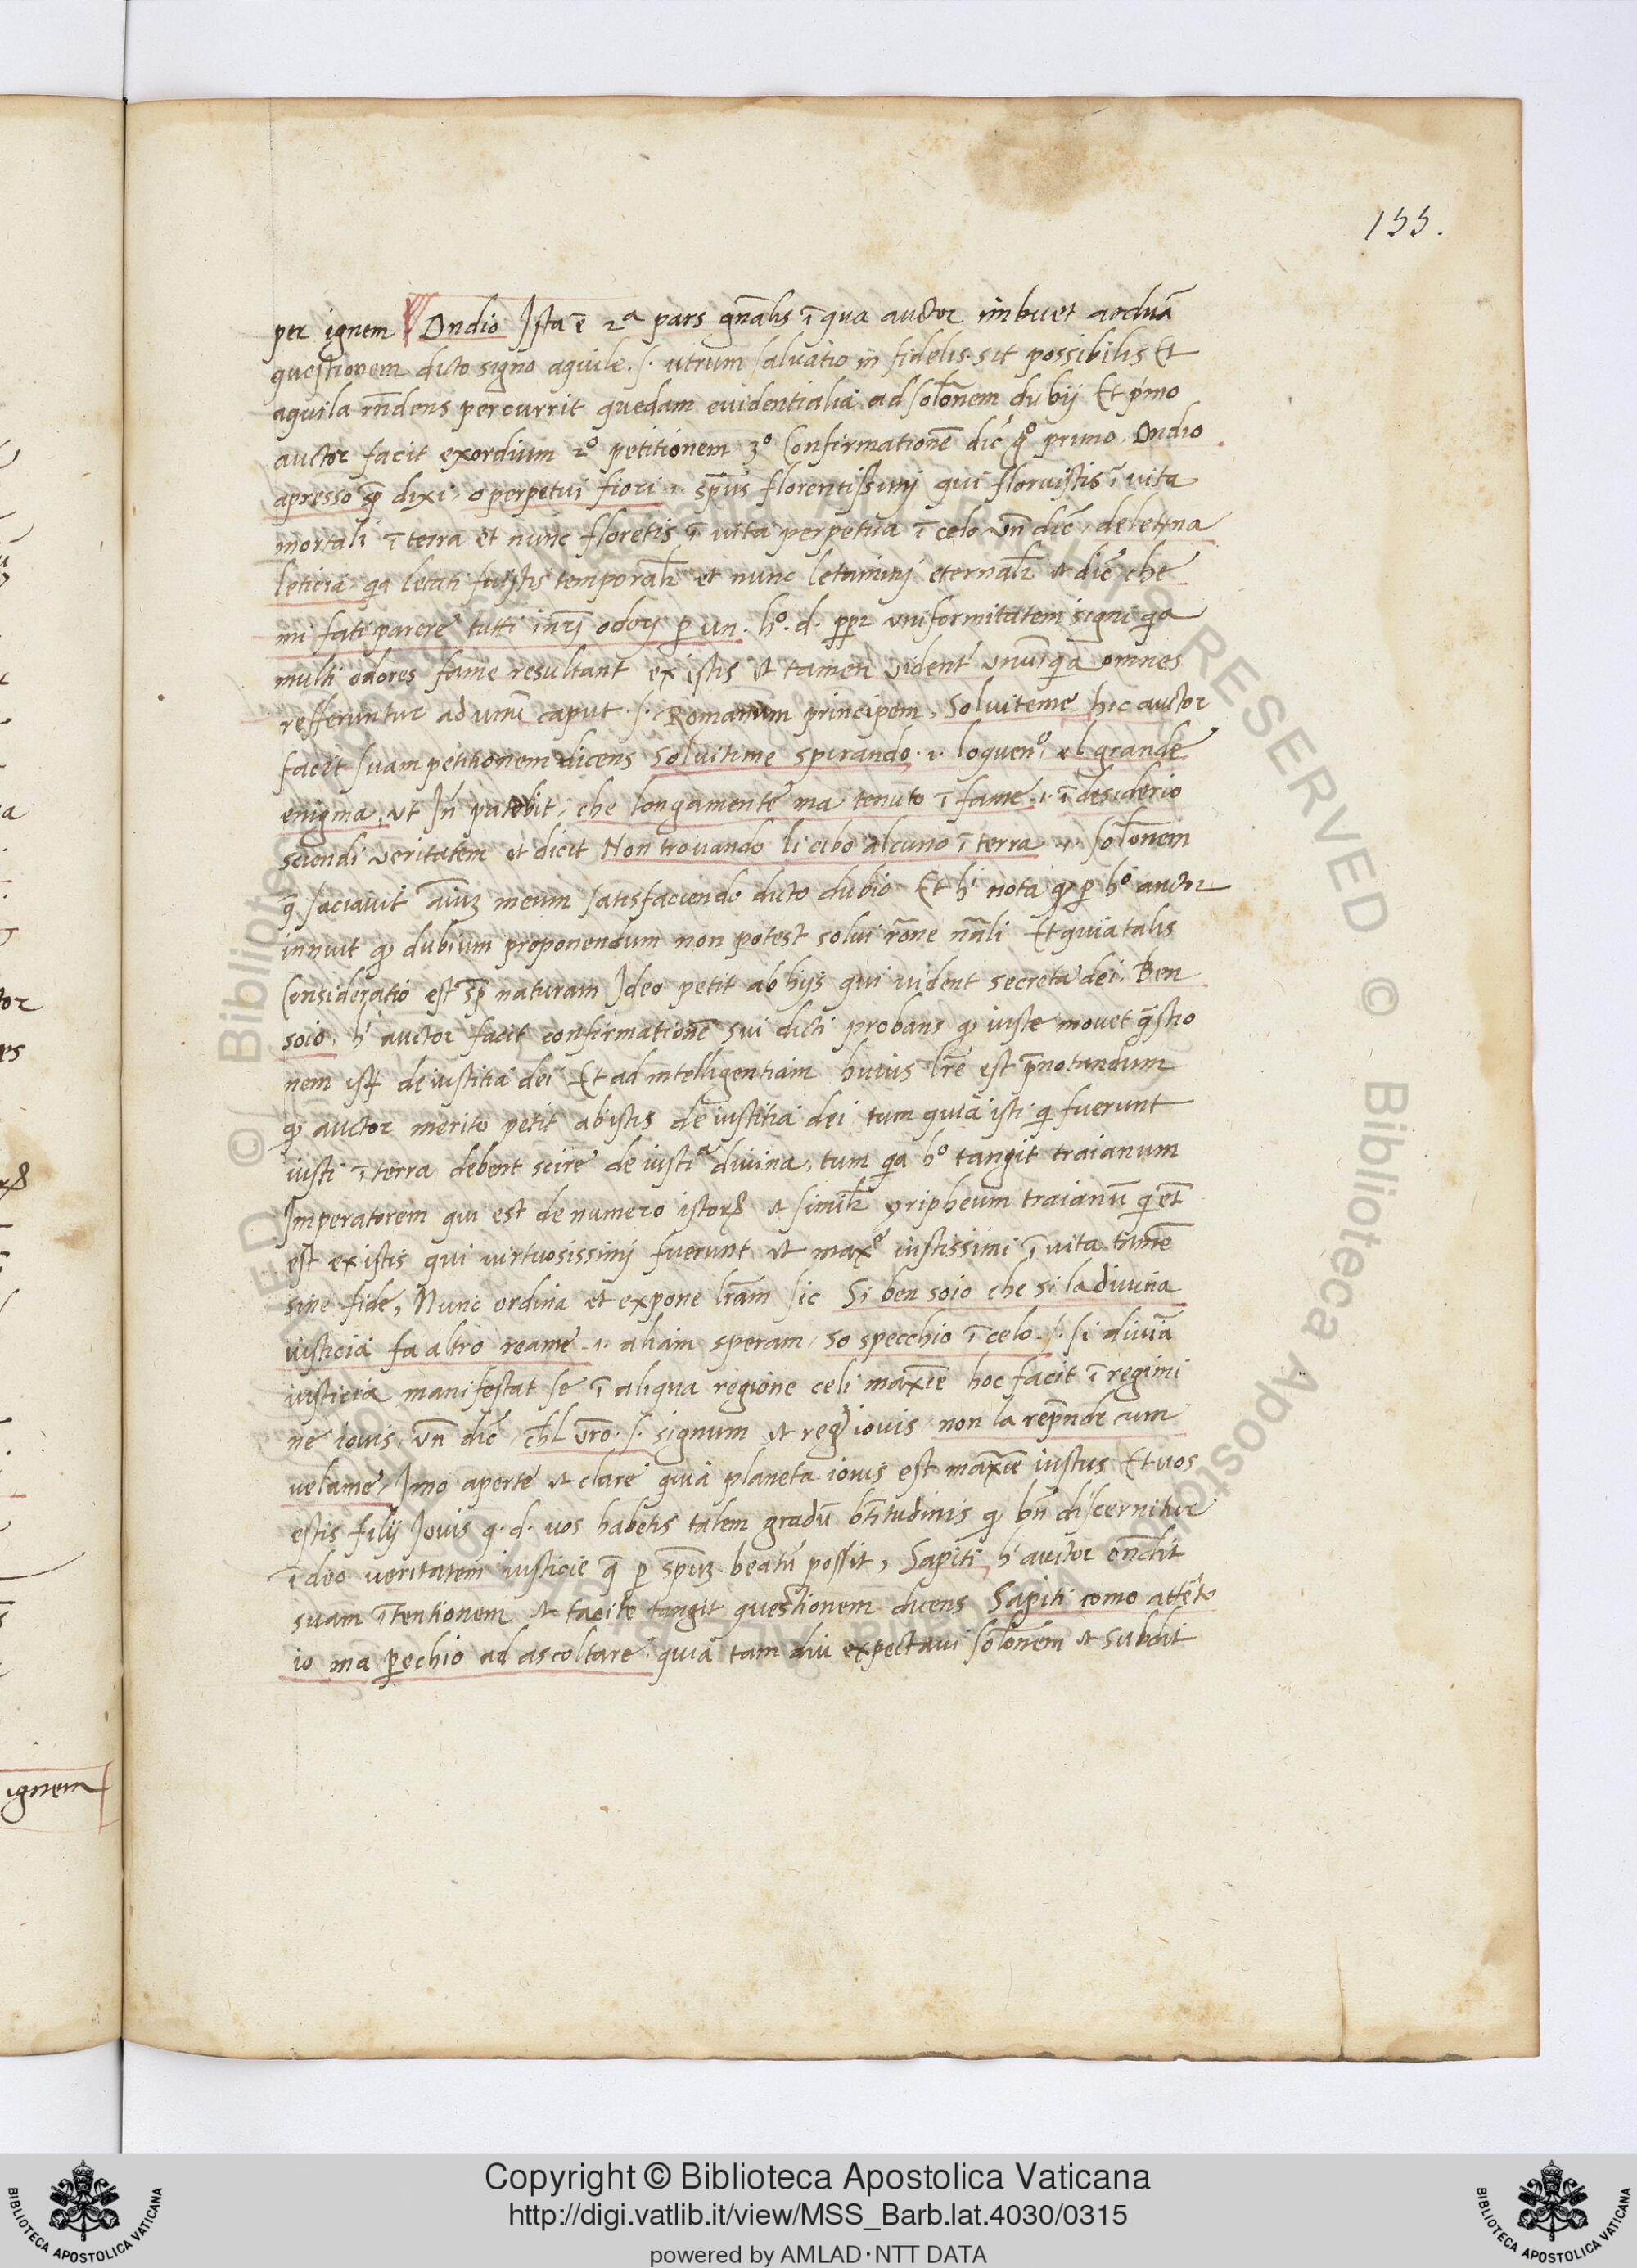 155.
per ignem Ondio Ista ē 2ᵃ pars gn̄alis ī qua auctor imbuet arduā
questionem dicto signo aquile .s. utrum saluatio in fidelis sit possibilis Et
aquila rn̄dens percurrit quedam euidentialia ad solōnem dubij Et p'mo
auctor facit exordium 2º petitionem 3º Confirmationē dic̄ gº primo. Ondio
apresso sp̄ dixi, o perpetui fiori .i. spūs florentissimj qui floruistis ī uita
mortali ī terra et nunc floretis ī uita perpetua ī celo un̄ dic̄, de letterna
leticia, qa letati fuistis temporalr̄ et nunc letaminj eternalr̄ et dic̄ che
mi fati parere tutti in r̄j odorj p un. hº. d. pp2 uniformitatem signi qa
multi odores fame resultant ex istis et tamen uident' unū qa omnes
refferuntur ad unū caput .s. Romanum principem, Soluiteme hic auctor
facit suam petitionem dicens soluitime spirando .i. loquenº, el grande
enigma, ut Jn̄ patebit, che longamente ma tenuto ī fame .i. ī desiderio
sciendi ueritatem et dicit Non trouando li cibo alcuno ī terra .i. solōnem
q̄ saciauit aīuȝ meum satisfaciendo dicto dubio Et h' nota qɔ p hº auctor
innuit qɔ dubium proponendum non potest solui rōne nāli Et quia talis
Consideratio est sp̄ naturam Ideo petit ab hijs qui uident secreta dei. Ben
soio, h' auctor facit confirmationē sui dicti probans qɔ iuste mouet q̄stio
nem ist' de iustitia dei Et ad intelligentiam huius lr̄e est p̄notandum
qɔ auctor merito petit ab istis de iustitia dei tum quia isti q' fuerunt
iusti ī terra debent scire de iustiᵃ diuina, tum qa hº tangit traianum
Imperatorem qui est de numero istoꝝ et similr̄ yripheum traianū q' et̄
est ex istis qui uirtuosissimj fuerunt et maxᵉ iustissimi ī uita tamē
sine fide, Nunc ordina et expone lr̄am sic Si ben soio che si la diuina
iusticia fa altro reame .i. aliam speram, so specchio ī celo .s. si diuīa
iusticia manifestat se ī aliqua regione celi maxīe hoc facit ī regimi
ne iouis, un̄ dic̄ ch̄l ur̄o .s. signum et reg) iouis non la rep̄nde cum
uelame, Imo aperte et clare quia planeta iouis est maxīe iustus Et uos
estis filij Jouis q. d. uos habetis talem gradū bt̄itudinis qɔ bn̄ discernitur
ī deo ueritatem iusticie q̄ p sp̄uȝ beatū possit, Sapiti, h' auctor on̄dit
suam ītentionem et tacite tangit questionem dicens Sapiti como attēto
io ma pechio ad ascoltare, quia tam diu expectaui solōnem et subdit
ignem
Copyright © Biblioteca Apostolica Vaticana
http://digi.vatlib.it/view/MSS_Barb.lat.4030/0315
powered by AMLAD·NTT DATA